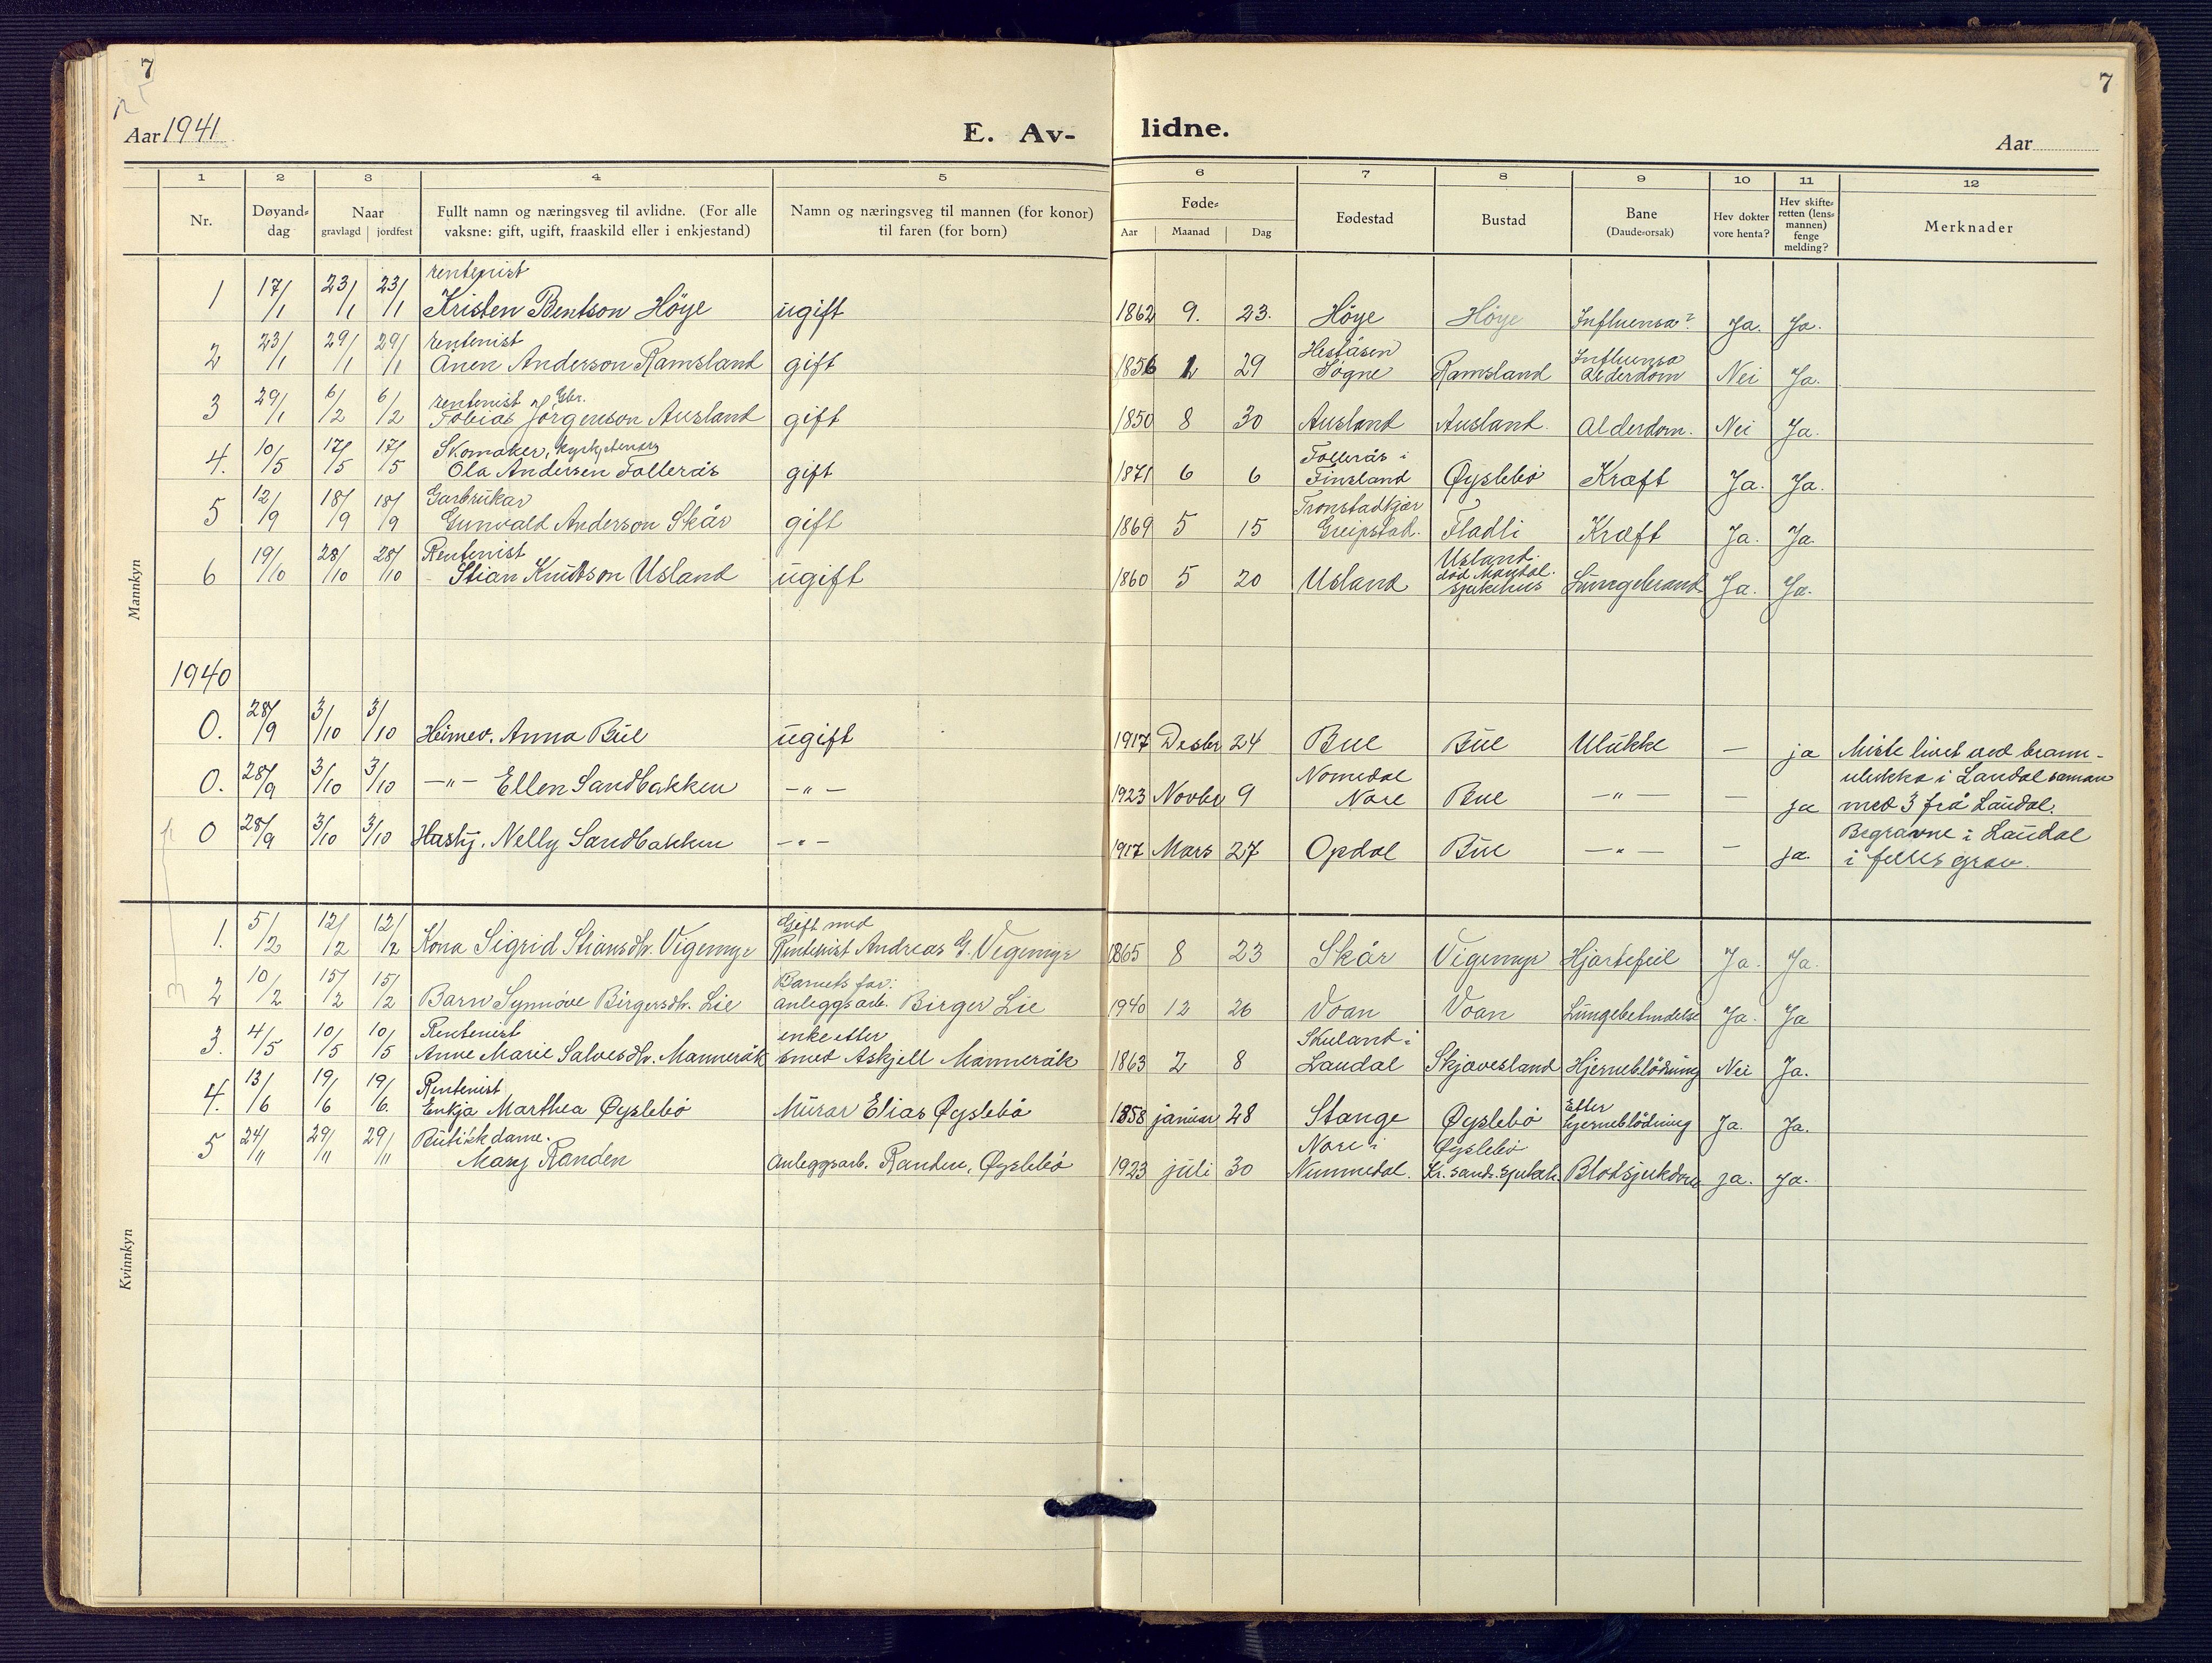 7
7
Aar 1941
E. Av-
lidne.
Aar
1 2 3 4 5 6 7 8 9 10 11 12
Nr.
Døyand-
dag
Naar
gravlagd | jordfest
Fullt namn og næringsveg til avlidne. (For alle
vaksne: gift, ugift, fraaskild eller i enkjestand)
Namn og næringsveg til mannen (for konor)
til faren (for born)
Føde-
Aar | Maanad | Dag
Fødestad
Bustad
Bane
(Daude-orsak)
Hev dokter
vore henta?
Hev skifte-
retten (lens-
mannen)
fenge
melding?
Merknader
Mannkyn
rentenist
1 17/1 23/1 23/1 Kristen Bentson Höye ugift 1862 9. 23. Höye Höye Influensa? Ja. Ja.
rentenist Heståsen Influensa
2 23/1 29/1 29/1 Ånen Anderson Ramsland gift 1856 1 29 Søgne Ramsland Alderdom Nei Ja.
rentenist Gbr.
3 29/1 6/2 6/2 Tobias Jörgenson Ausland gift 1850 8 30 Ausland Ausland. Alderdom. Nei Ja.
Skomaker, kyrkjetenar Follerås i
4. 10/5 17/5 17/5 Ola Andersen Follerås gift 1871 6 6 Finsland Øyslebö Kraft Ja. Ja.
Garbrukar Tronstadkjær
5 12/9 18/9 18/9 Gunvald Anderson Skår gift 1869 5 15 Greipstad. Fladli Kræft Ja. Ja.
Rentenist Usland.
död Mandal.
6 19/10 28/10 28/10 Stian Knutson Usland ugift 1860 5 20 Usland sjukehus Lungebrand Ja. Ja.
1940
0. 28/9 3/10 3/10 Heimev. Anna Bue ugift 1917 Desbr 24 Bue Bue Ulukke — ja Miste livet ved brann-
Nomedal ulukka i Laudal saman
0. 28/9 3/10 3/10 —"— Ellen Sandbakken —"— 1923 Novbr 9 Nore Bue —"— — ja med 3 frå Laudal.
Begravne i Laudal
0 28/9 3/10 3/10 Hushj. Nelly Sandbakken —"— 1917 Mars 27 Opdal Bue —"— — ja. i felles grav.
Kvinnkyn
Gift med
1. 5/2 12/2 12/2 Kona Sigrid Stiansdtr. Vigemyr Rentenist Andreas G. Vigemyr 1865 8 23 Skår Vigemyr Hjartefeil Ja. Ja.
Barnets far:
2 10/2 15/2 15/2 Barn Synnöve Birgersdtr. Lie anleggsarb. Birger Lie 1940 12 26 Voan Voan Lungebetendelse Ja. Ja
Rentenist enke etter Skuland i
3. 4/5 10/5 10/5 Anne Marie Salvesdtr. Manneråk smed Askjell Manneråk 1863 2 8 Laudal Skjævesland Hjerneblödning Nei Ja.
Rentenist Etter
4. 13/6 19/6 19/6. Enkja Marthea Øyslebö Murar Elias Øyslebö 1858 januar 28 Stange Øyslebö hjerneblödning Ja. Ja.
Butikkdame. Nore i Øyslebö
5 24/11 29/11 29/11 Mary Randen Anleggsarb. Randen, Øyslebö 1923 juli 30 Nummedal. Kr.sand.sjukeh. Blodsjukdom ja. ja.